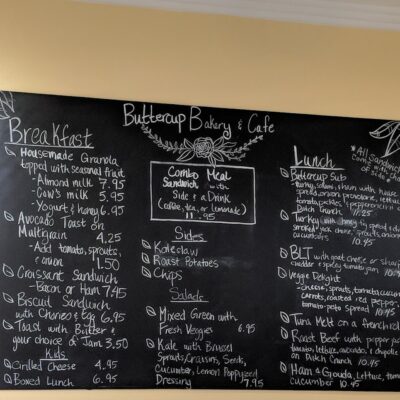 Buttercup Bakery & Cafe
Breakfast
Housemade Granola
topped with seasonal fruit
- Almond milk 7.95
- Cow's milk 5.95
- Yogurt & honey 6.95
Avocado Toast on
Multigrain 4.25
- Add tomato, sprouts,
& onion 1.50
Croissant Sandwich
- Bacon or Ham 7.45
Biscuit Sandwich
with Cheese & Egg 6.95
Toast with Butter &
your choice of Jam 3.50
Kids
Grilled Cheese 4.95
Boxed Lunch 6.95
Combo Meal
Sandwich with
Side & a Drink
(coffee, tea, or lemonade)
11.95
Sides
Koleslaw
Roast Potatoes
Chips
Salads
Mixed Green with
Fresh Veggies 6.95
Kale with Brussel
Sprouts, Craisins, Seeds,
Cucumber, Lemon Poppyseed
Dressing 7.95
Lunch
*All Sandwich
Buttercup Sub
- turkey, salami, ham with house
spread, onion, provolone, lettuce
tomato, pickles, & pepperoncini
Dutch Crunch 11.25
Turkey with honey & spread
smoked jack cheese, sprouts, onion
cucumber 10.95
BLT with goat cheese or sharp
cheddar & spicy tomato jam 10.95
Veggie Delight
- Cheese, sprouts, tomato, cucumber
carrots, roasted red pepper,
tomato-pesto spread 10.45
Tuna Melt on a french roll
Roast Beef with pepper
tomato, lettuce, avocado, & chipotle
on Dutch Crunch 10.95
Ham & Gouda, lettuce, tomato
cucumber 10.95